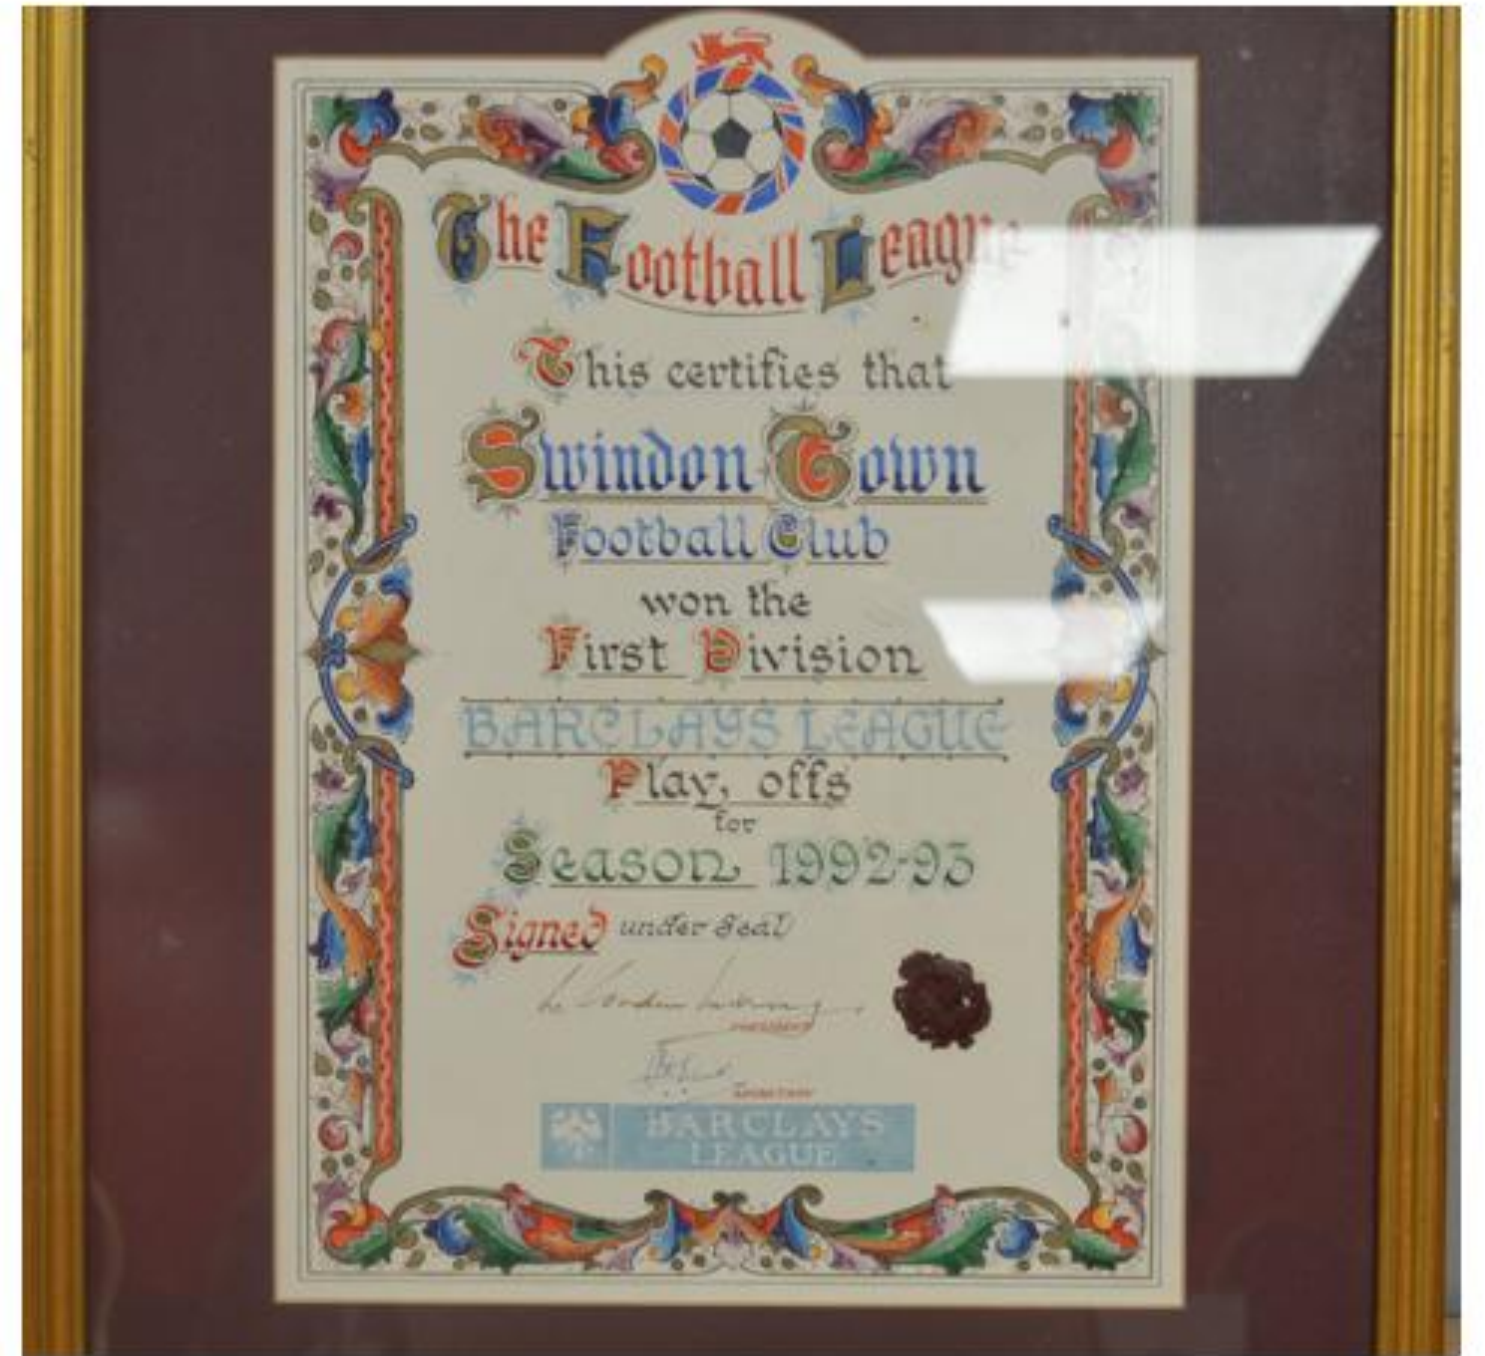 The Football League
This certifies that
Swindon Town
Football Club
won the
First Division
BARCLAYS LEAGUE
Play, offs
for
Season 1992-93
Signed under Seal
PRESIDENT
SECRETARY
BARCLAYS
LEAGUE